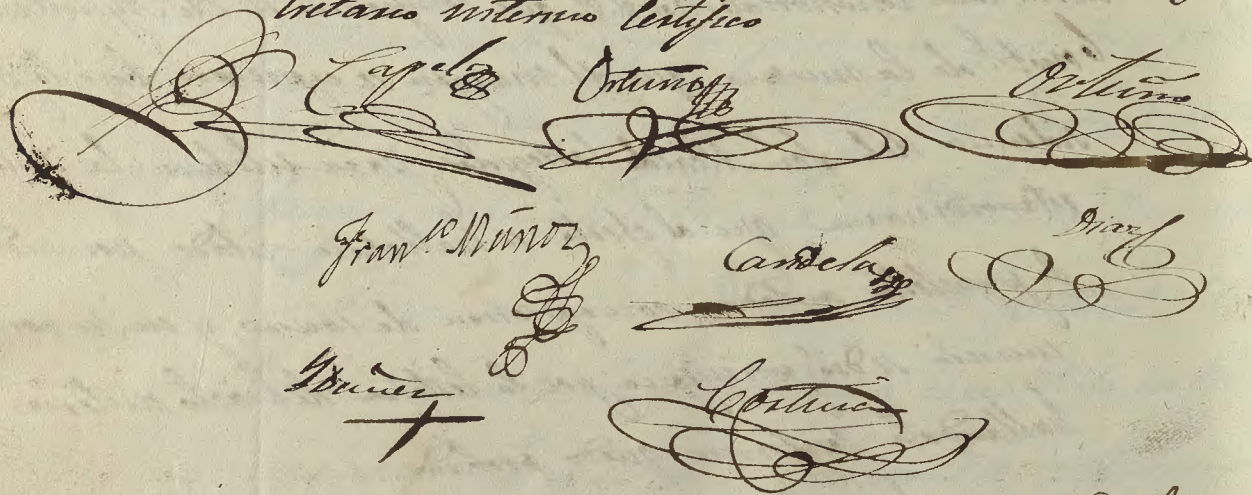 cretario interino Certifico
Capela Ortuño Ortuño
Franco Muñoz Candela Diaz
Ybañez